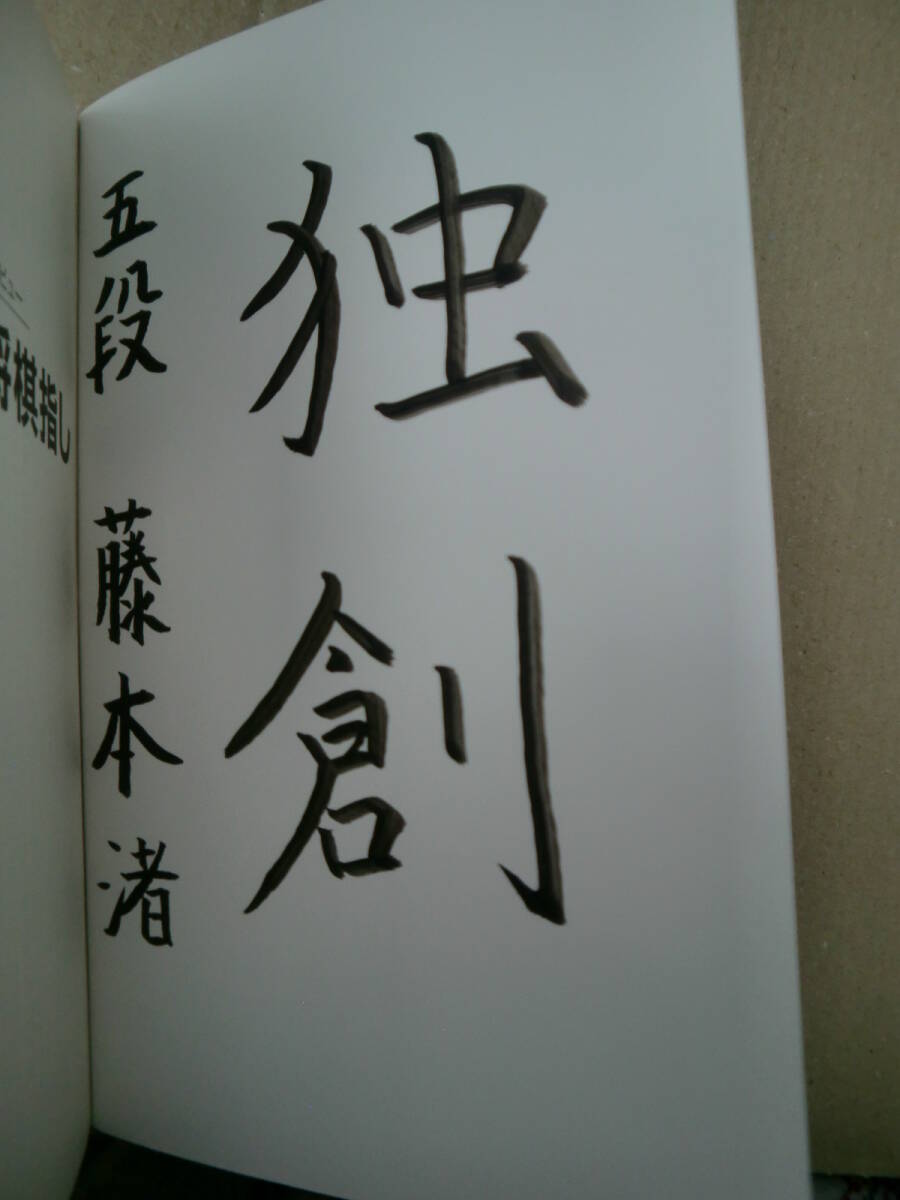 独創
五段 藤本渚
ビュー
将棋指し